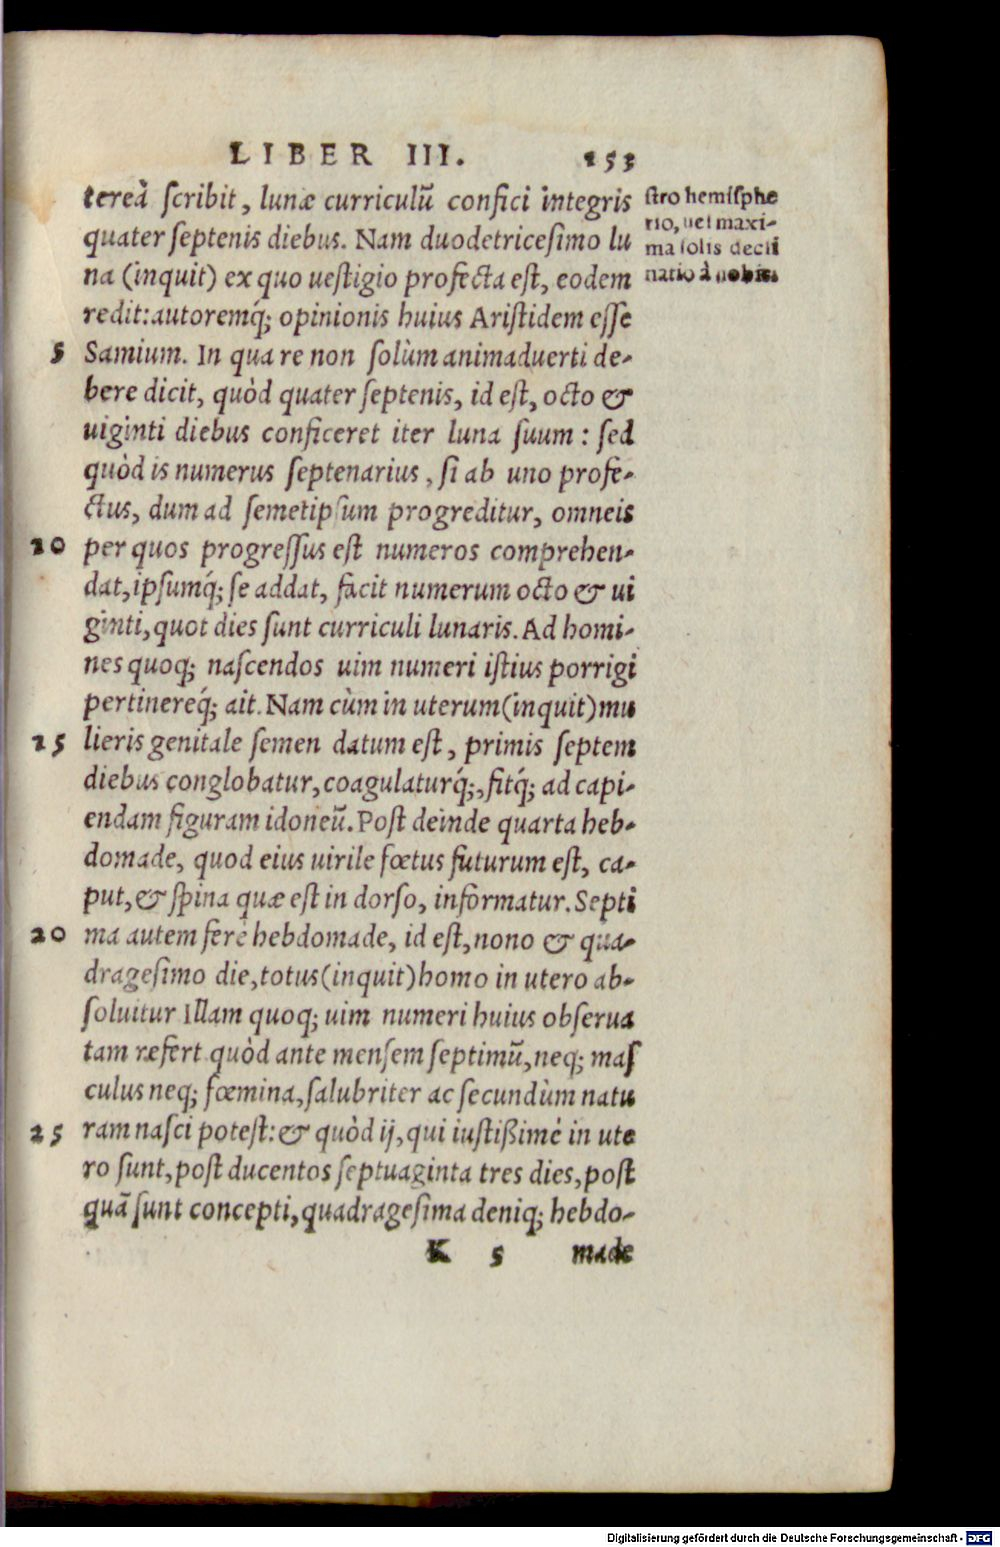 LIBER III. 153
tereà scribit, lunæ curriculũ confici integris
quater septenis diebus. Nam duodetricesimo lu
na (inquit) ex quo uestigio profecta est, eodem
redit: autoremq́; opinionis huius Aristidem esse
5 Samium. In qua re non solùm animaduerti de-
bere dicit, quòd quater septenis, id est, octo &
uiginti diebus conficeret iter luna suum: sed
quòd is numerus septenarius, si ab uno profe-
ctus, dum ad semetipsum progreditur, omneis
10 per quos progressus est numeros comprehen-
dat, ipsumq́; se addat, facit numerum octo & ui
ginti, quot dies sunt curriculi lunaris. Ad homi-
nes quoq; nascendos uim numeri istius porrigi
pertinereq́; ait. Nam cùm in uterum (inquit) mu
15 lieris genitale semen datum est, primis septem
diebus conglobatur, coagulaturq́;, fitq́; ad capi-
endam figuram idoneũ. Post deinde quarta heb-
domade, quod eius uirile fœtus futurum est, ca-
put, & spina quæ est in dorso, informatur. Septi
20 ma autem ferè hebdomade, id est, nono & qua-
dragesimo die, totus (inquit) homo in utero ab-
soluitur Illam quoq; uim numeri huius obserua
tam refert quòd ante mensem septimũ, neq; mas
culus neq; fœmina, salubriter ac secundùm natu
25 ram nasci potest: & quòd ij, qui iustißimè in ute
ro sunt, post ducentos septuaginta tres dies, post
quã sunt concepti, quadragesima deniq; hebdo-
K 5 made
stro hemisphe
rio, uel maxi-
ma solis decli
natio à nobis.
Digitalisierung gefördert durch die Deutsche Forschungsgemeinschaft - DFG